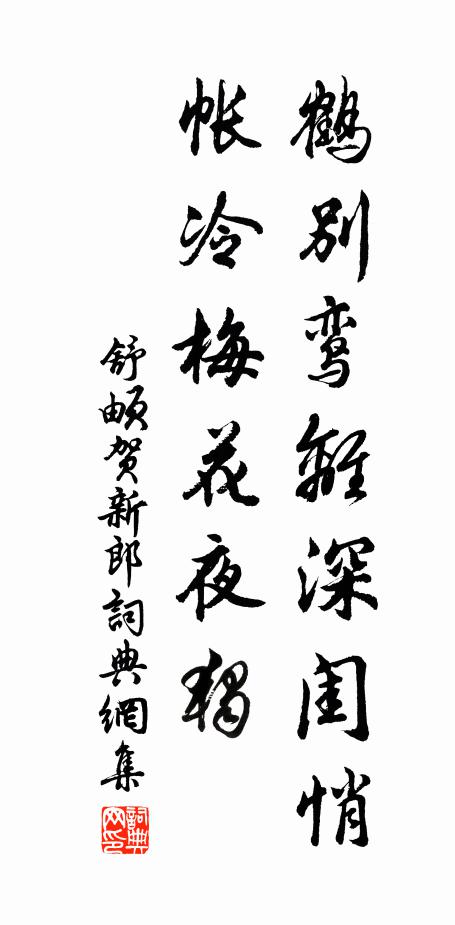 鹤别鸾離深闺悄
帐冷梅花夜独
舒頔贺新郎詞典網集
詞典网印